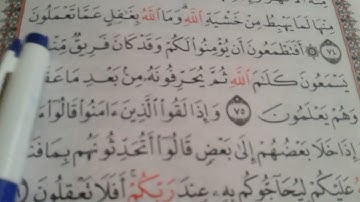 مِنْهَا لَمَا يَهْبِطُ مِنْ خَشْيَةِ اللَّهِ وَمَا اللَّهُ بِغَافِلٍ عَمَّا تَعْمَلُونَ
﴿٧٤﴾ أَفَتَطْمَعُونَ أَن يُؤْمِنُوا لَكُمْ وَقَدْ كَانَ فَرِيقٌ مِّنْهُمْ
يَسْمَعُونَ كَلَامَ اللَّهِ ثُمَّ يُحَرِّفُونَهُ مِن بَعْدِ مَا عَقَلُوهُ
وَهُمْ يَعْلَمُونَ ﴿٧٥﴾ وَإِذَا لَقُوا الَّذِينَ ءَامَنُوا قَالُوا ءَامَنَّا
وَإِذَا خَلَا بَعْضُهُمْ إِلَىٰ بَعْضٍ قَالُوا أَتُحَدِّثُونَهُم بِمَا فَتَحَ
عَلَيْكُمْ لِيُحَاجُّوكُم بِهِ عِندَ رَبِّكُمْ أَفَلَا تَعْقِلُونَ